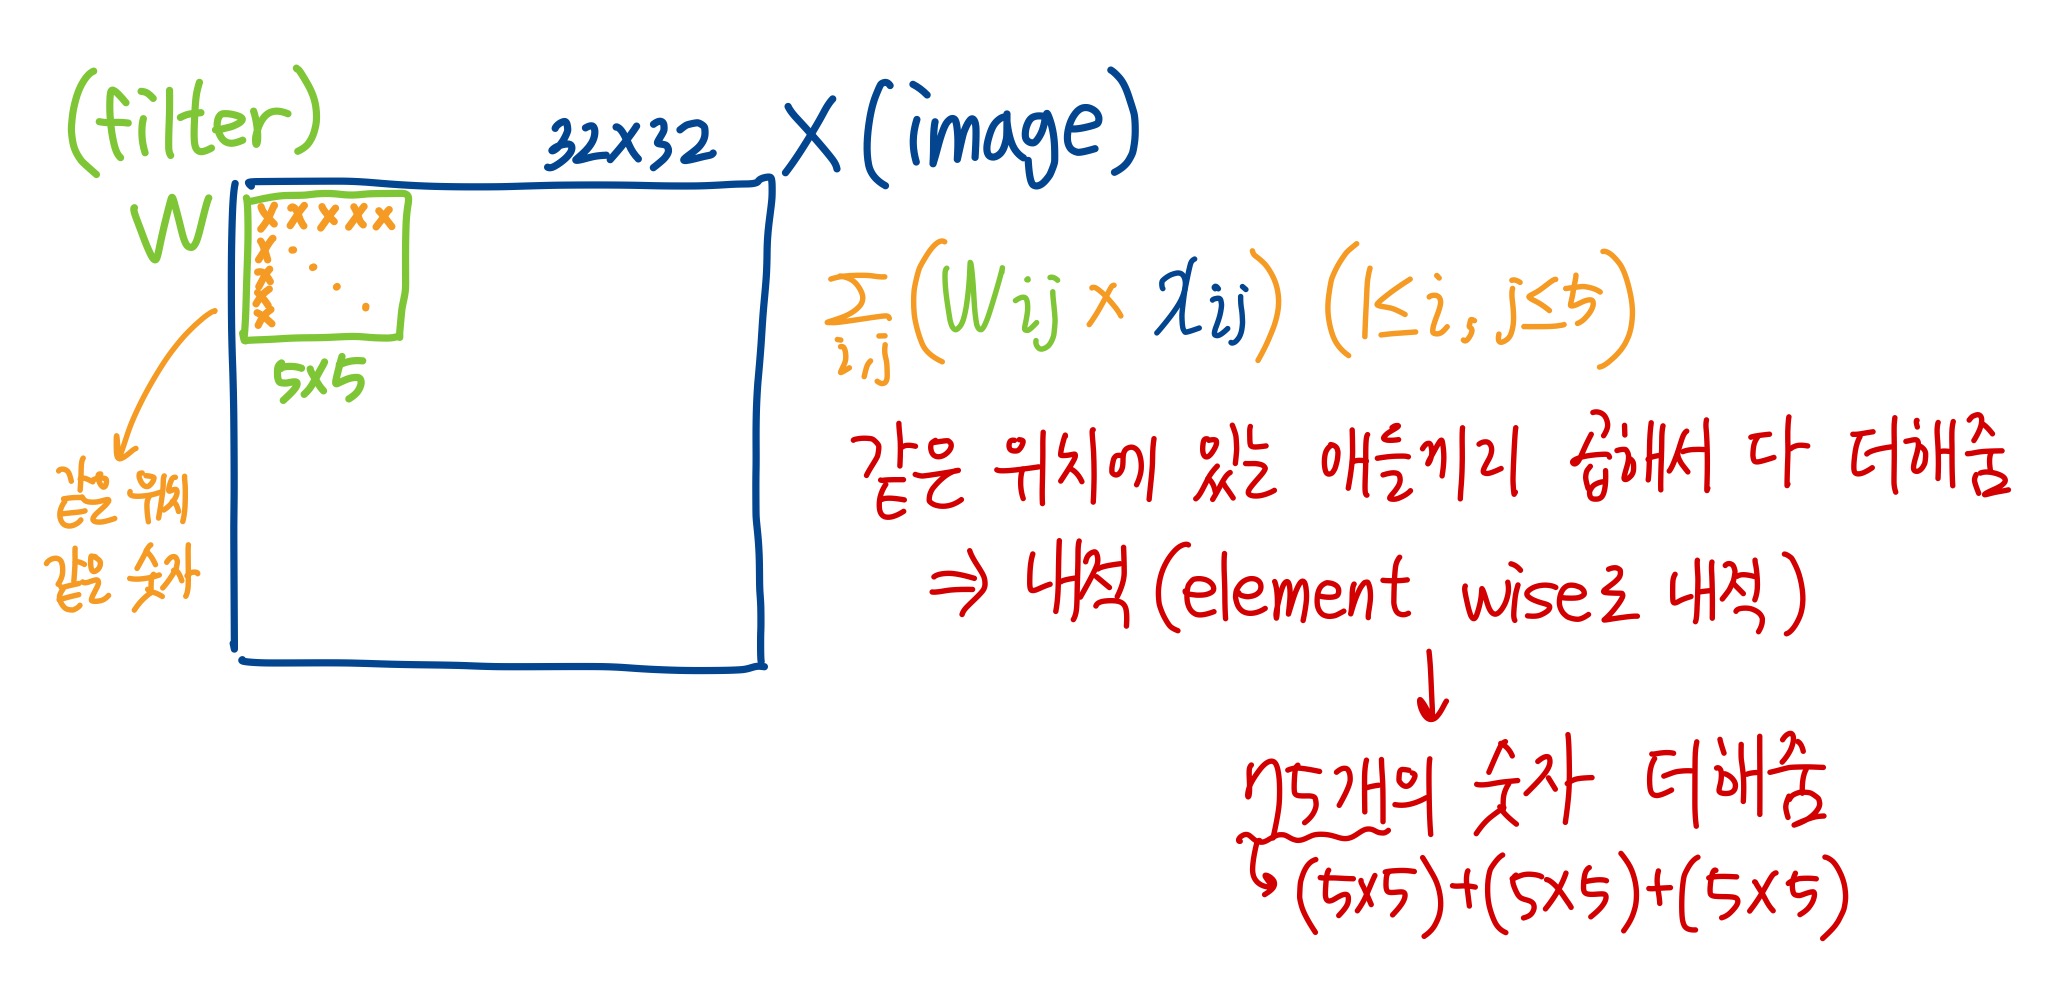 (filter)
32x32 X (image)
W
x x x x x
x
x
x
x
5x5
같은 위치
같은 숫자
Σ i,j (Wij × xij) (1≤i, j≤5)
같은 위치에 있는 애들끼리 곱해서 다 더해줌
⇒ 내적 (element wise로 내적)
75개의 숫자 더해줌
(5x5)+(5x5)+(5x5)